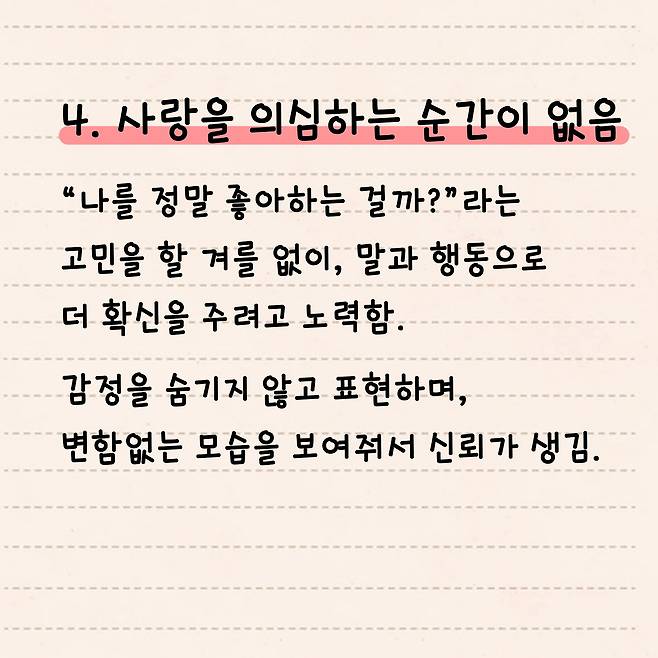 4. 사랑을 의심하는 순간이 없음
“나를 정말 좋아하는 걸까?”라는
고민을 할 겨를 없이, 말과 행동으로
더 확신을 주려고 노력함.
감정을 숨기지 않고 표현하며,
변함없는 모습을 보여줘서 신뢰가 생김.